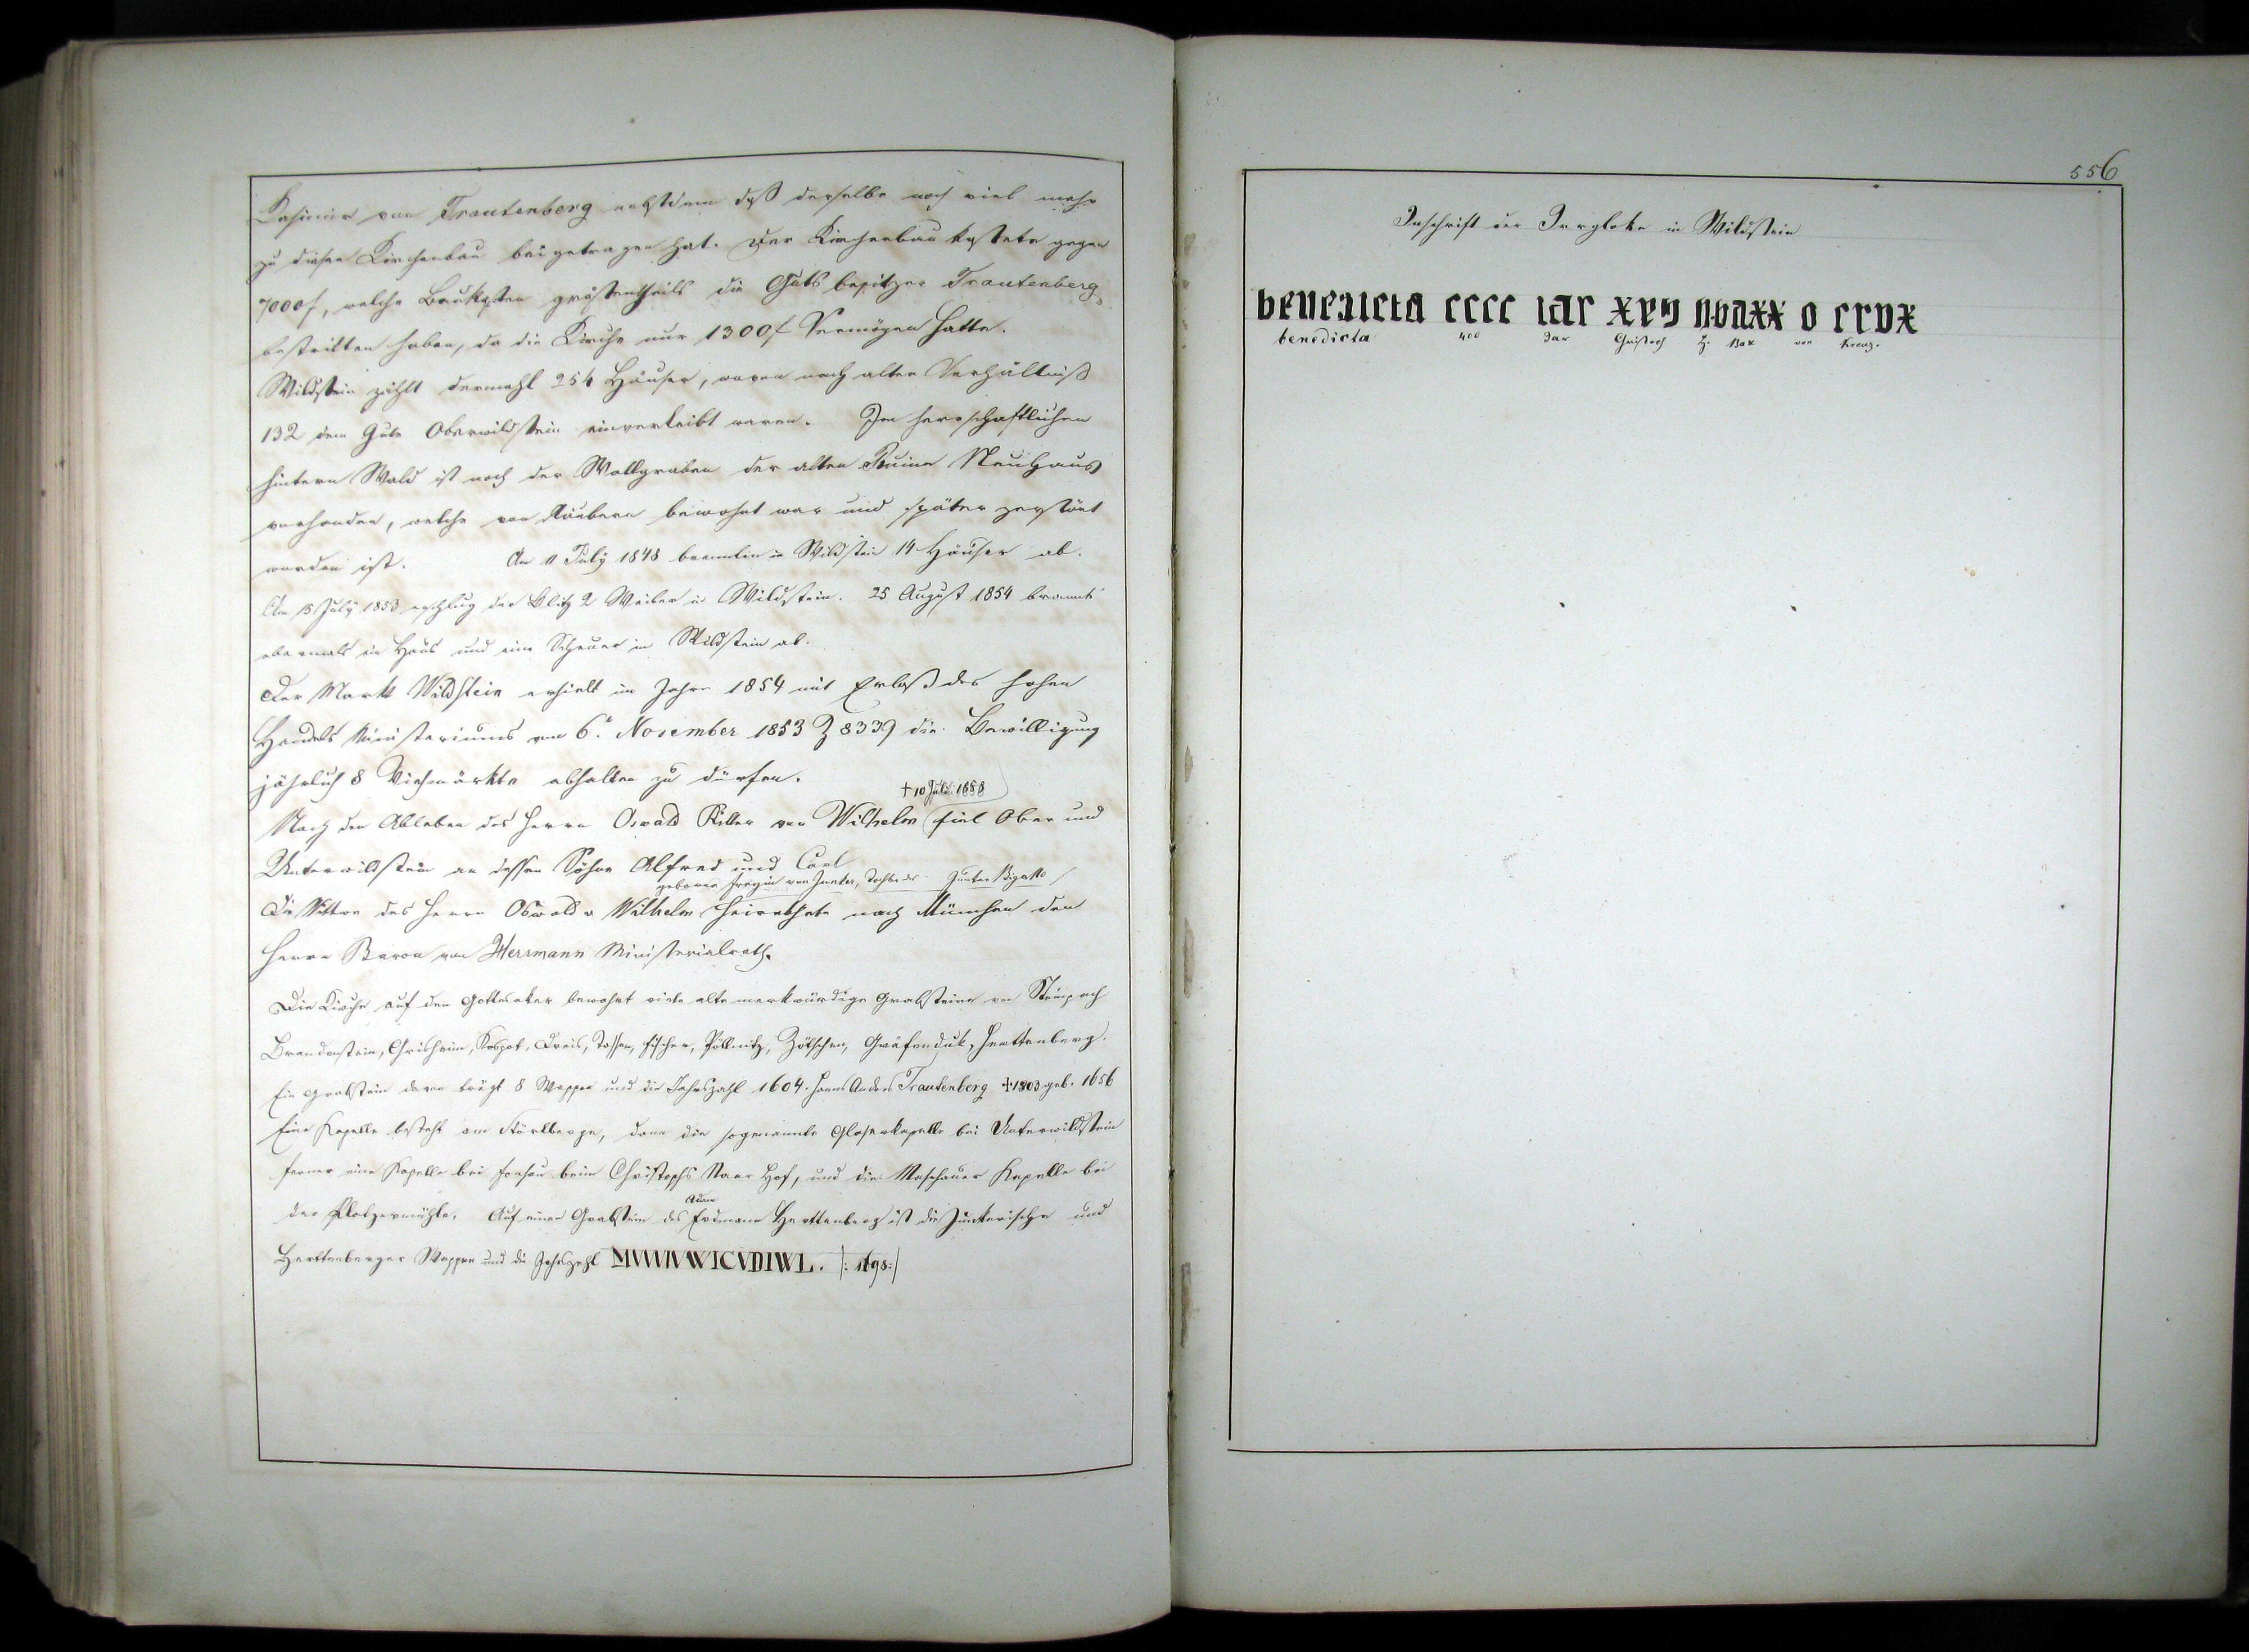 Kasimir von Trautenberg nebstdem daß derselbe noch viel mehr
zu diesen Kirchenbau beigetragen hat. Der Kirchenbau kostete gegen
7000f, welche Baukosten größtentheils die Gutsbesitzer Trautenberg
bestritten haben, da die Kirche nur 1300f Vermögen hatte.
Wildstein zählt dermahl 254 Häuser, wovon nach alten Verhältniß
132 dem Gute Oberwildstein einverleibt waren. Im herrschaftlichen
hintern Wald ist noch der Wallgraben der alten Ruine Neuhaus
vorhanden, welche von Räubern bewohnt war und später zerstört
worden ist. Am 11 July 1848 brannten in Wildstein 14 Häuser ab.
Am 18 July 1853 erschlug der Blitz 2 Weiber in Wildstein. 25 August 1854 brannte
abermals ein Haus und eine Scheuer in Wildstein ab.
Der Markt Wildstein erhielt im Jahre 1854 mit Erlaß des hohen
Handels Ministeriums vom 6t November 1853 Z 8339 die Bewilligung
jährlich 8 Viehmärkte abhalten zu dürfen.
† 10 Juli 1858
Nach den Ableben des Herrn Oswald Ritter von Wilhelm fiel Ober und
Unterwildstein an dessen Söhne Alfred und Carl
geborene Freyin von Junker, Tochter des Junker Bigatto
Die Wittwe des Herrn Oswald v Wilhelm heirathete nach München den
Herrn Baron von Herrmann Ministerialrath.
Die Kirche auf den Gottesaker bewahrt viele alte merkwürdige Grabsteine von Steinpach
Brandenstein, Chrisheim, Kospot, Dreis, Tossen, Fischer, Pöllnitz, Zötschen, Gräfenduk, Herttenberg.
Ein Grabstein davon trägt 8 Wappen und die Jahrszahl 1604. Hanns Anders Trautenberg †1803 geb. 1656
Eine Kapelle besteht am Störlberge, dann die sogenannte Gloserkapelle bei Unterwildstein
ferner eine Kapelle bei beim Christophs Naar Hof, und die Maschauer Kapelle bei
Adam
der Plotzermühle. Auf einen Grabstein des Erdmann Herttenberg ist die Junkerische und
Herttenberger Wappen und die Jahrszahl MVVVIVWICVDIWL. /: 1698:/
556
Inschrift der Glocke in Wildstein
benedicta cccc iar xpy o crvx
benedicta 400 Jar Christoph H. Max von Kreuz.